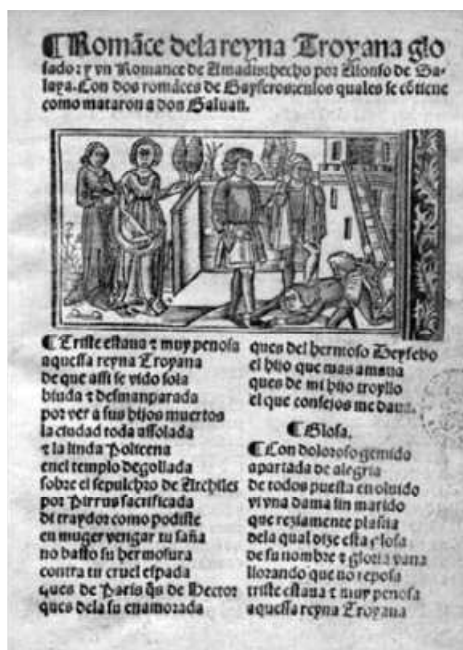 ¶Romãce dela reyna Troyana glo
sado: y vn Romance de Amadis: hecho por Alonso de Sa-
laya. Con dos romãces de Gayferos: enlos quales se cõtiene
como mataron a don Galuan.
¶Triste estaua ⁊ muy penosa
aquessa reyna Troyana
de que assi se vido sola
biuda ⁊ desmanparada
por ver a sus hijos muertos
la ciudad toda assolada
⁊ la linda Policena
enel templo degollada
sobre el sepulchro de Archiles
por Pirrus sacrificada
di traydor como podiste
en muger vengar tu saña
no basto su hermosura
contra tu cruel espada
ques de Paris q̃s de Hector
ques dela su enamorada
ques del hermoso Deyfebo
el hijo que mas amaua
ques de mi hijo troylo
el que consejos me daua.
¶Glosa.
¶Con doloroso gemido
apartada de alegria
de todos puesta en oluido
vi vna dama sin marido
que reziamente plañia
dela qual dize esta glosa
de su nombre ⁊ gloria vana
llorando que no reposa
triste estaua ⁊ muy penosa
aquessa reyna Troyana